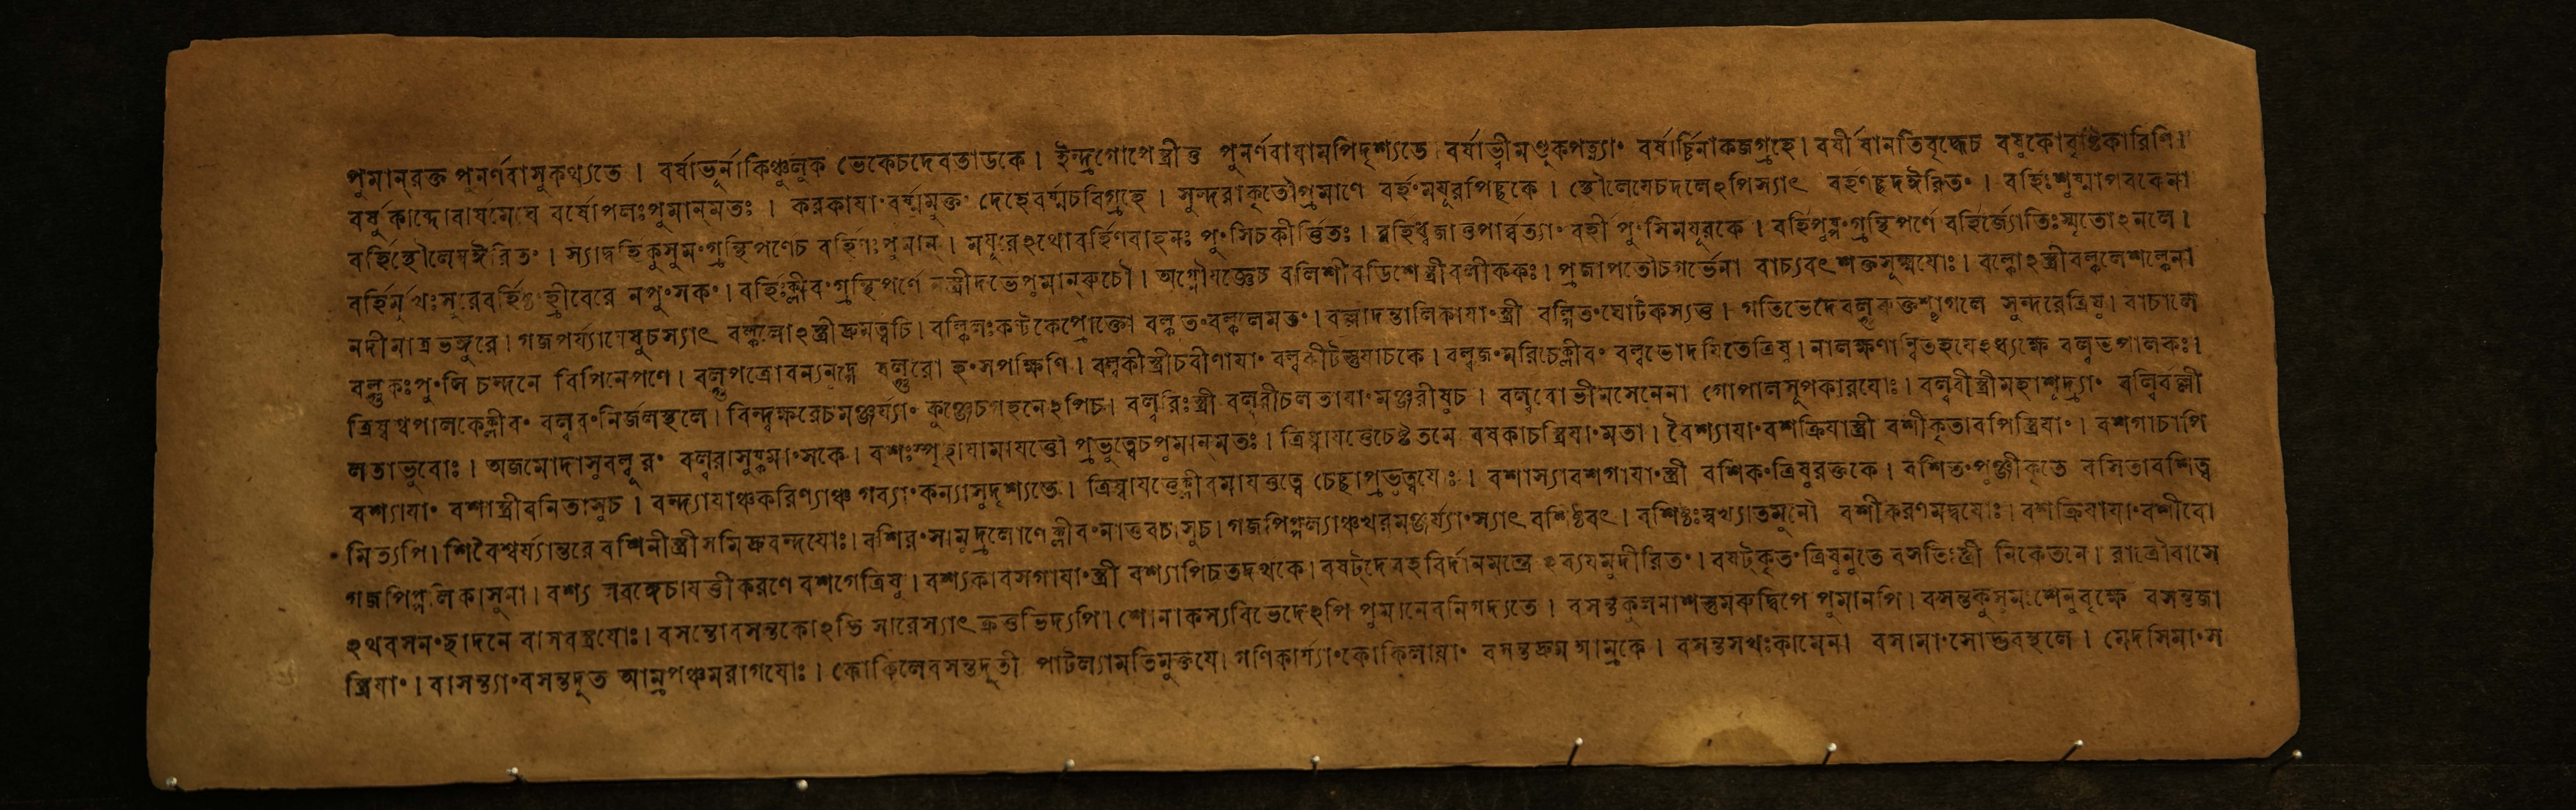 পুমান্‌রক্ত পুনর্ণবাসুকথ্যতে । বর্ষাভূর্নাকিঞ্চুলুক ভেকেচদেবতাডকে । ইন্দ্রগোপেস্ত্রীতু পুনর্ণবাযামপিদৃশ্যতে বর্ষাভ্বীমণ্ডূকপত্ন্যা॰ বর্ষার্চ্চিনাকজগ্রহে । বর্ষীযানতিবৃদ্ধেচ বর্ষুকোবৃষ্টিকারিণি ।
বর্ষুকাব্দোবার্ষমেঘে বর্ষোপলঃপুমান্‌মতঃ । করকাযা॰বর্ষ্মমুক্ত॰ দেহেবর্ষ্মচবিগ্রহে । সুন্দরাকৃতৌপ্রমাণে বর্হ॰মযূরপিচ্ছকে । স্থৌলেযেচদলেঽপিস্যাৎ বর্হণচ্ছদঈরিত॰ । বর্হিঃশুষ্মাপবকেনা
বর্হিস্থৌলেযঈরিত॰ । স্যাদ্বর্হিকুসুম॰গ্রন্থিপর্ণেচ বর্হিণঃপুমান্ । মযূরেঽথোবর্হিণবাহনঃ পু॰সিচকীর্ত্তিতঃ । বর্হিধ্বজাতুপার্ব্বত্যা॰ বর্হী পু॰সিমযূরকে । বর্হিপুষ্প॰গ্রন্থিপর্ণে বর্হির্জ্যোতিঃস্মৃতোঽনলে ।
বর্হির্মুখঃসুরেবর্হিষ্ঠ॰হ্রীবেরে নপু॰সক॰ । বর্হিঃক্লীব॰গ্রন্থিপর্ণে নস্ত্রীদর্ভেপুমান্‌রুচৌ । অগ্নৌযজ্ঞেচ বলিশীবডিশে স্ত্রীবলীককঃ । প্রজাপতৌচগর্ভেনা বাচ্যবৎশক্তসূক্ষ্মযোঃ । বল্কোঽস্ত্রীবল্কলেশল্কেনা
নদীমাত্রভঙ্গুরে । গজপর্য্যাণেষুচস্যাৎ বল্কলোঽস্ত্রীদ্রুমত্বচি । বল্কিলঃকণ্টকেপ্রোক্তো বল্কত॰বল্কলেমত॰ । বল্গাদন্তালিকাযা॰স্ত্রী বল্গিত॰ঘোটকস্যতু । গতিভেদেবল্গু সুন্দরেত্রিষু । বাচালে
বল্গুকঃপু॰সি চন্দনে বিপিনেপণে । বল্গুপত্রোবন্যমুদ্গে বল্গুরো হ॰সপক্ষিণি । বল্লকীস্ত্রীচবীণাযা॰ বল্লকীটস্তুযাচকে । বল্লজ॰মরিচেক্লীব॰ বল্লভোদযিতেত্রিষু । নালক্ষণান্বিতহযেঽধ্যক্ষে বল্লভপালকঃ ।
ত্রিষ্বশ্বপালকেক্লীব॰ বল্লব॰নির্জলস্থলে । বিন্দ্বক্ষরেচমঞ্জর্য্যা॰ কুঞ্জেচগহনেঽপিচ । বল্লরিঃস্ত্রী বল্লরীচলতাযা॰মঞ্জরীষুচ । বল্লবোভীমসেনেনা গোপালসূপকারযোঃ । বল্লবীস্ত্রীমহাশূদ্র্যা॰ বল্লিবল্লী
লতাভুবোঃ । অজমোদাসুবল্লূর॰ বল্লুরাসুষ্কমা॰সকে । বশঃস্পৃহাযামাযত্তৌ প্রভুত্বেচপুমান্‌মতঃ । মতা । বৈশ্যাযা॰বশক্রিযাস্ত্রী বশীকৃতাবপিস্ত্রিযা॰ । বশগাচাপি
বশ্যাযা॰ বশাস্ত্রীবনিতাসুচ । বন্দ্যাযাঞ্চকরিণ্যাঞ্চ গব্যা॰কন্যাসুদৃশ্যতে । ত্রিষ্বাযত্তেক্লীবমাযত্তত্বে চেচ্ছাপ্রভুত্বযোঃ । বশাস্যাবশগাযা॰স্ত্রী বশিক॰ত্রিষুরক্তকে । বশিত॰পুঞ্জীকৃতে বসিতাবশিত্ব
মিত্যপি । শিবৈশ্বর্য্যান্তরে বশিনীস্ত্রীসমিদ্রুবন্দযোঃ । বশির॰সামুদ্রলোণেক্লীব॰ । গজপিপ্পল্যাঞ্চখরমঞ্জর্য্যা॰স্যাৎ বশিষ্ঠবৎ । বশিষ্ঠঃস্বখ্যাতমুনৌ বশীকরণমদ্বযোঃ । বশক্রিযাযা॰বশীবো
গজপিপ্পলিকাসুনা । বশ্য॰লবঙ্গেচাযত্তীকরণে বশগেত্রিষু । বশ্যকাবসগাযা॰স্ত্রী বশ্যাপিচতদর্থকে । বষট্‌দেবহবির্দানমন্ত্রেঽব্যযমুদীরিত॰ । বষট্‌কৃত॰ত্রিষুহুতে বসতিঃস্ত্রী নিকেতনে । রাত্রৌবাসে
ঽথবসন॰ছাদনে বাসবস্ত্রযোঃ । বসন্তোবসন্তকোঽস্তি । শোনাকস্যবিভেদেঽপি পুমানেবনিগদ্যতে । পুমানপি । বসন্তকুসুমঃশেলুবৃক্ষে বসন্তজা
স্ত্রিযা॰ । বাসন্ত্যা॰বসন্তদূত আম্রপঞ্চমরাগযোঃ । কোকিলেবসন্তদূতী পাটল্যামতিমুক্তযে । গণিকার্য্যা॰কোকিলাযা॰ বসন্তদ্রুম আম্রকে । বসন্তসখঃকামেনা মেদসিমা॰স